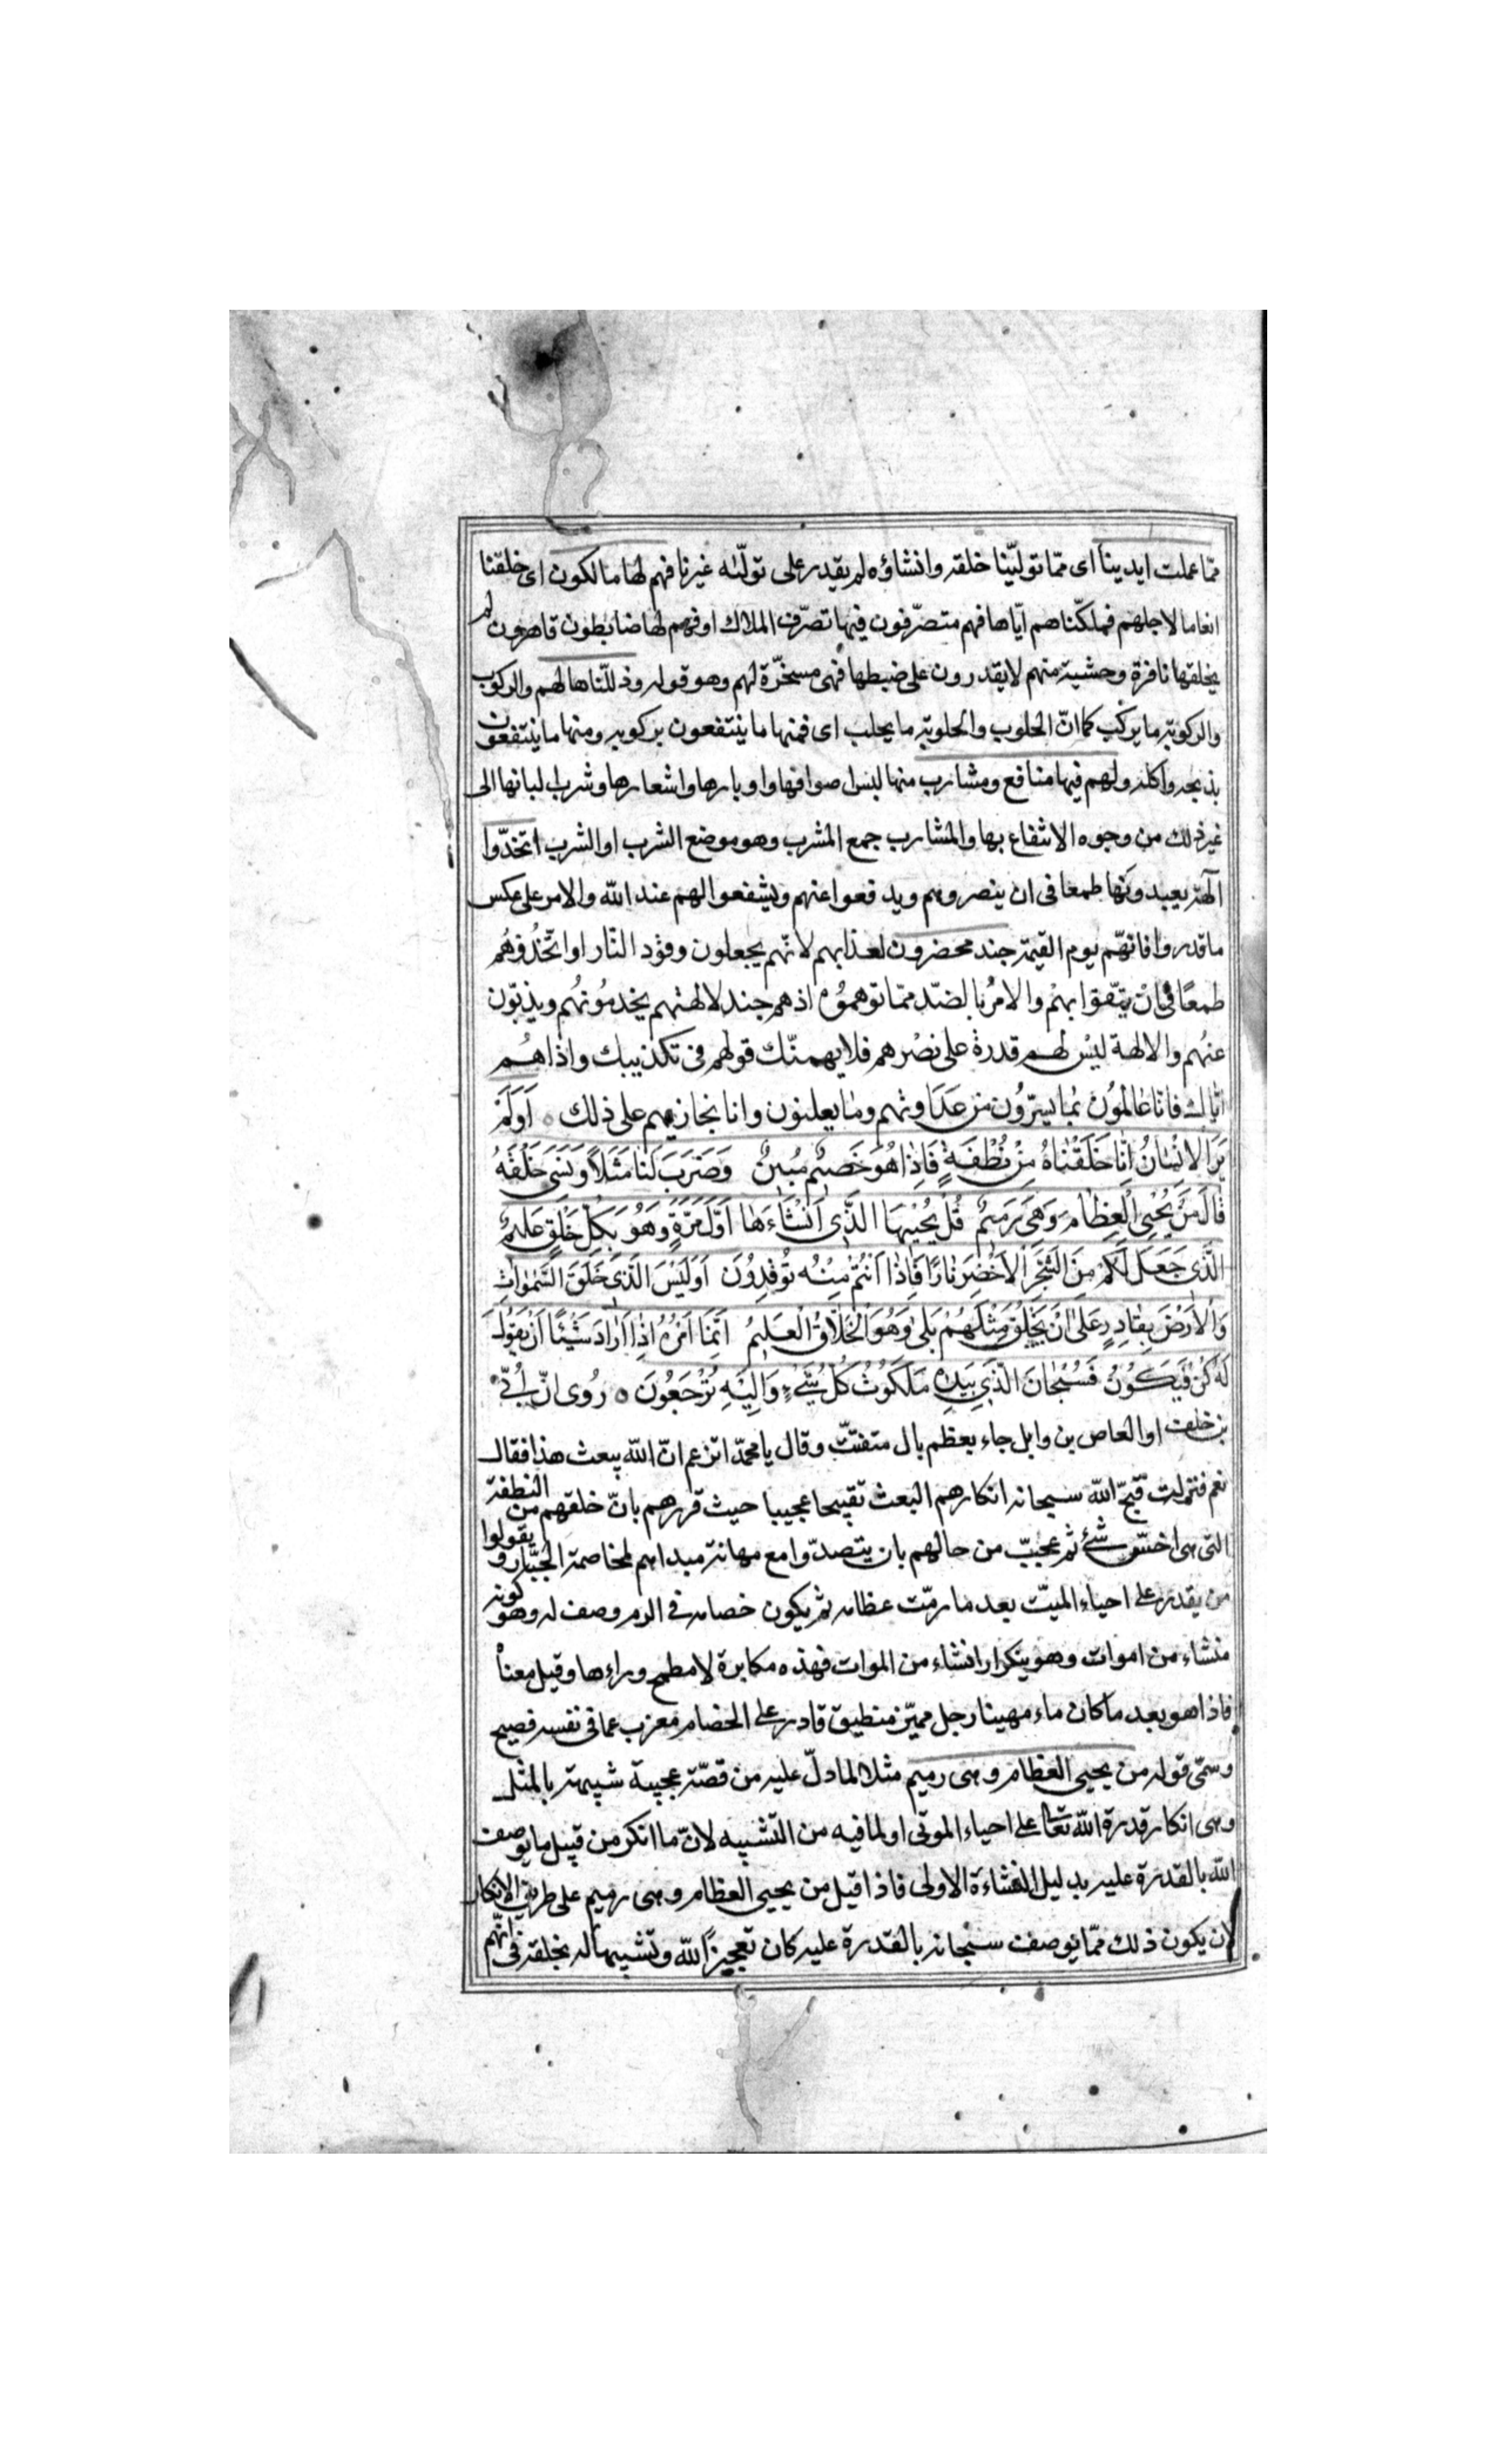 ممّا عملت ايدينا اى ممّا تولّينا خلقه وانشاؤه لم يقدر على تولّيه غيرنا فهم لها مالكون اى خلقنا
انعاما لاجلهم فملكّناهم ايّاها فهم متصرّفون فيها تصرّف الملاك او فهم لها ضابطون قاهرون لم
يخلقها نافرة وحشية منهم لا يقدرون على ضبطها فهى مسخّرة لهم وهو قوله وذللّناها لهم والركوب
والركوبة ما يركب كما انّ الحلوب والحلوبة ما يحلب اى فمنها ما ينتفعون بركوبه ومنها ما ينتفعون
بذبحه واكله ولهم فيها منافع ومشارب منها لبس اصوافها واوبارها واشعارها وشرب البانها الى
غير ذلك من وجوه الانتفاع بها والمشارب جمع المشرب وهو موضع الشرب او الشرب اتخذوا
آلهة يعبدونها طمعا فى ان ينصروهم ويدفعوا عنهم ويشفعوا لهم عند الله والامر على عكس
ما قدروا فانهّم يوم القيمة جند محضرون لعذابهم لانّهم يجعلون وقود النّار او اتّخذُوهُم
طمعًا فى ان يتقّوا بهمْ والامرُ بالضدّ ممّا توهموُه اذ هم جند لالهتهم يخدموُنهُم ويذبّون
عنهُم والالهة ليْس لهم قدرة على نصْرهم فلا يهمنّك قولهم فى تكذيبك واذاهُم
ايّاك فانّا عالموُن بما يسرّوُن من عداوتهم وما يعلنون وانا نجازيهم على ذلك ○ اَوَلَمْ
يَرَ الاِنْسَانُ اَنّا خَلَقْنَاهُ مِنْ نُطْفَةٍ فَاِذا هُوَ خَصيْمٌ مُبينٌ وَضَرَبَ لَنا مَثَلاً وَنَسِىَ خَلْقَهُ
قالَ مَنْ يُحْيِى الْعِظامَ وَهِىَ رَميمٌ قُلْ يُحْييهَا الَّذى اَنْشَاءَها اَوَّلَ مَرَّةٍ وَهُوَ بِكُلِّ خَلْقٍ عَليمٌ
الَّذى جَعَلَ لَكُمْ مِنَ الشَّجَرِ الاَخْضَرِ نارًا فَاِذا اَنْتُمْ مِنْهُ تُوقِدُوُنَ اَوَلَيْسَ الَّذى خَلَقَ السَّمٰواتِ
وَالاَرْضَ بِقادِرٍ عَلىٰ اَنْ يَخْلُقَ مِثْلَهُمْ بَلى وَهُوَ الْخَلّاقُ الْعَليمُ اِنَّمَا اَمْرُهُ اِذا اَرادَ شَيْئًا اَنْ يَقوُلَ
لَهُ كُنْ فَيَكوُنُ فَسُبْحانَ الَّذى بِيَدِهِ مَلَكوُتُ كُلِّ شَىْءٍ وَاِلَيْهِ تُرْجَعُونَ ○ رُوى انّ اُبَىّ
بن خلف او العاص بن وايل جاء بعظم بال متفتّت وقال يا محمّد اتزعم انّ الله يبعث هذا فقال
نعم فنزلت قبّح الله سبحانه انكارهم البعث تقبيحا عجيبا حيث قررهم بانّ خلقهم من النطفة
التى هى اخسّ شئ ثم عجّب من حالهم بان يتصدّوا مع مهانة مبداهم لمخاصمة الجبّار ويقولوا
من يقدر على احياء الميّت بعد ما رمّت عظامه ثم يكون خصامه فى الزم وصف له وهو كونه
منشاء من اموات وهو ينكر انشاء من الموات فهذه مكابرة لا مطمح وراءها وقيل معناْ
فاذا هو بعد ما كان ماء مهينا رجل مميّز منطيق قادر على الخصام معرب عما فى نفسه فصيح
وسمّى قوله من يحيى العظام وهى رميم مثلا لما دلّ عليه من قصّة عجيبة شبيهة بالمثل
وهى انكار قدرة الله تعالى على احياء الموتى او لما فيه من التشبيه لانّ ما انكر من قبيل ما يوصف
الله بالقدرة عليه بدليل النشاءة الاولى فاذا قيل من يحيى العظام وهى رميم على طريق الانكار
لان يكون ذلك ممّا يوصف سبحانه بالقدرة عليه كان تعجيزًا لله وتشبيها له بخلقه فى انّهم